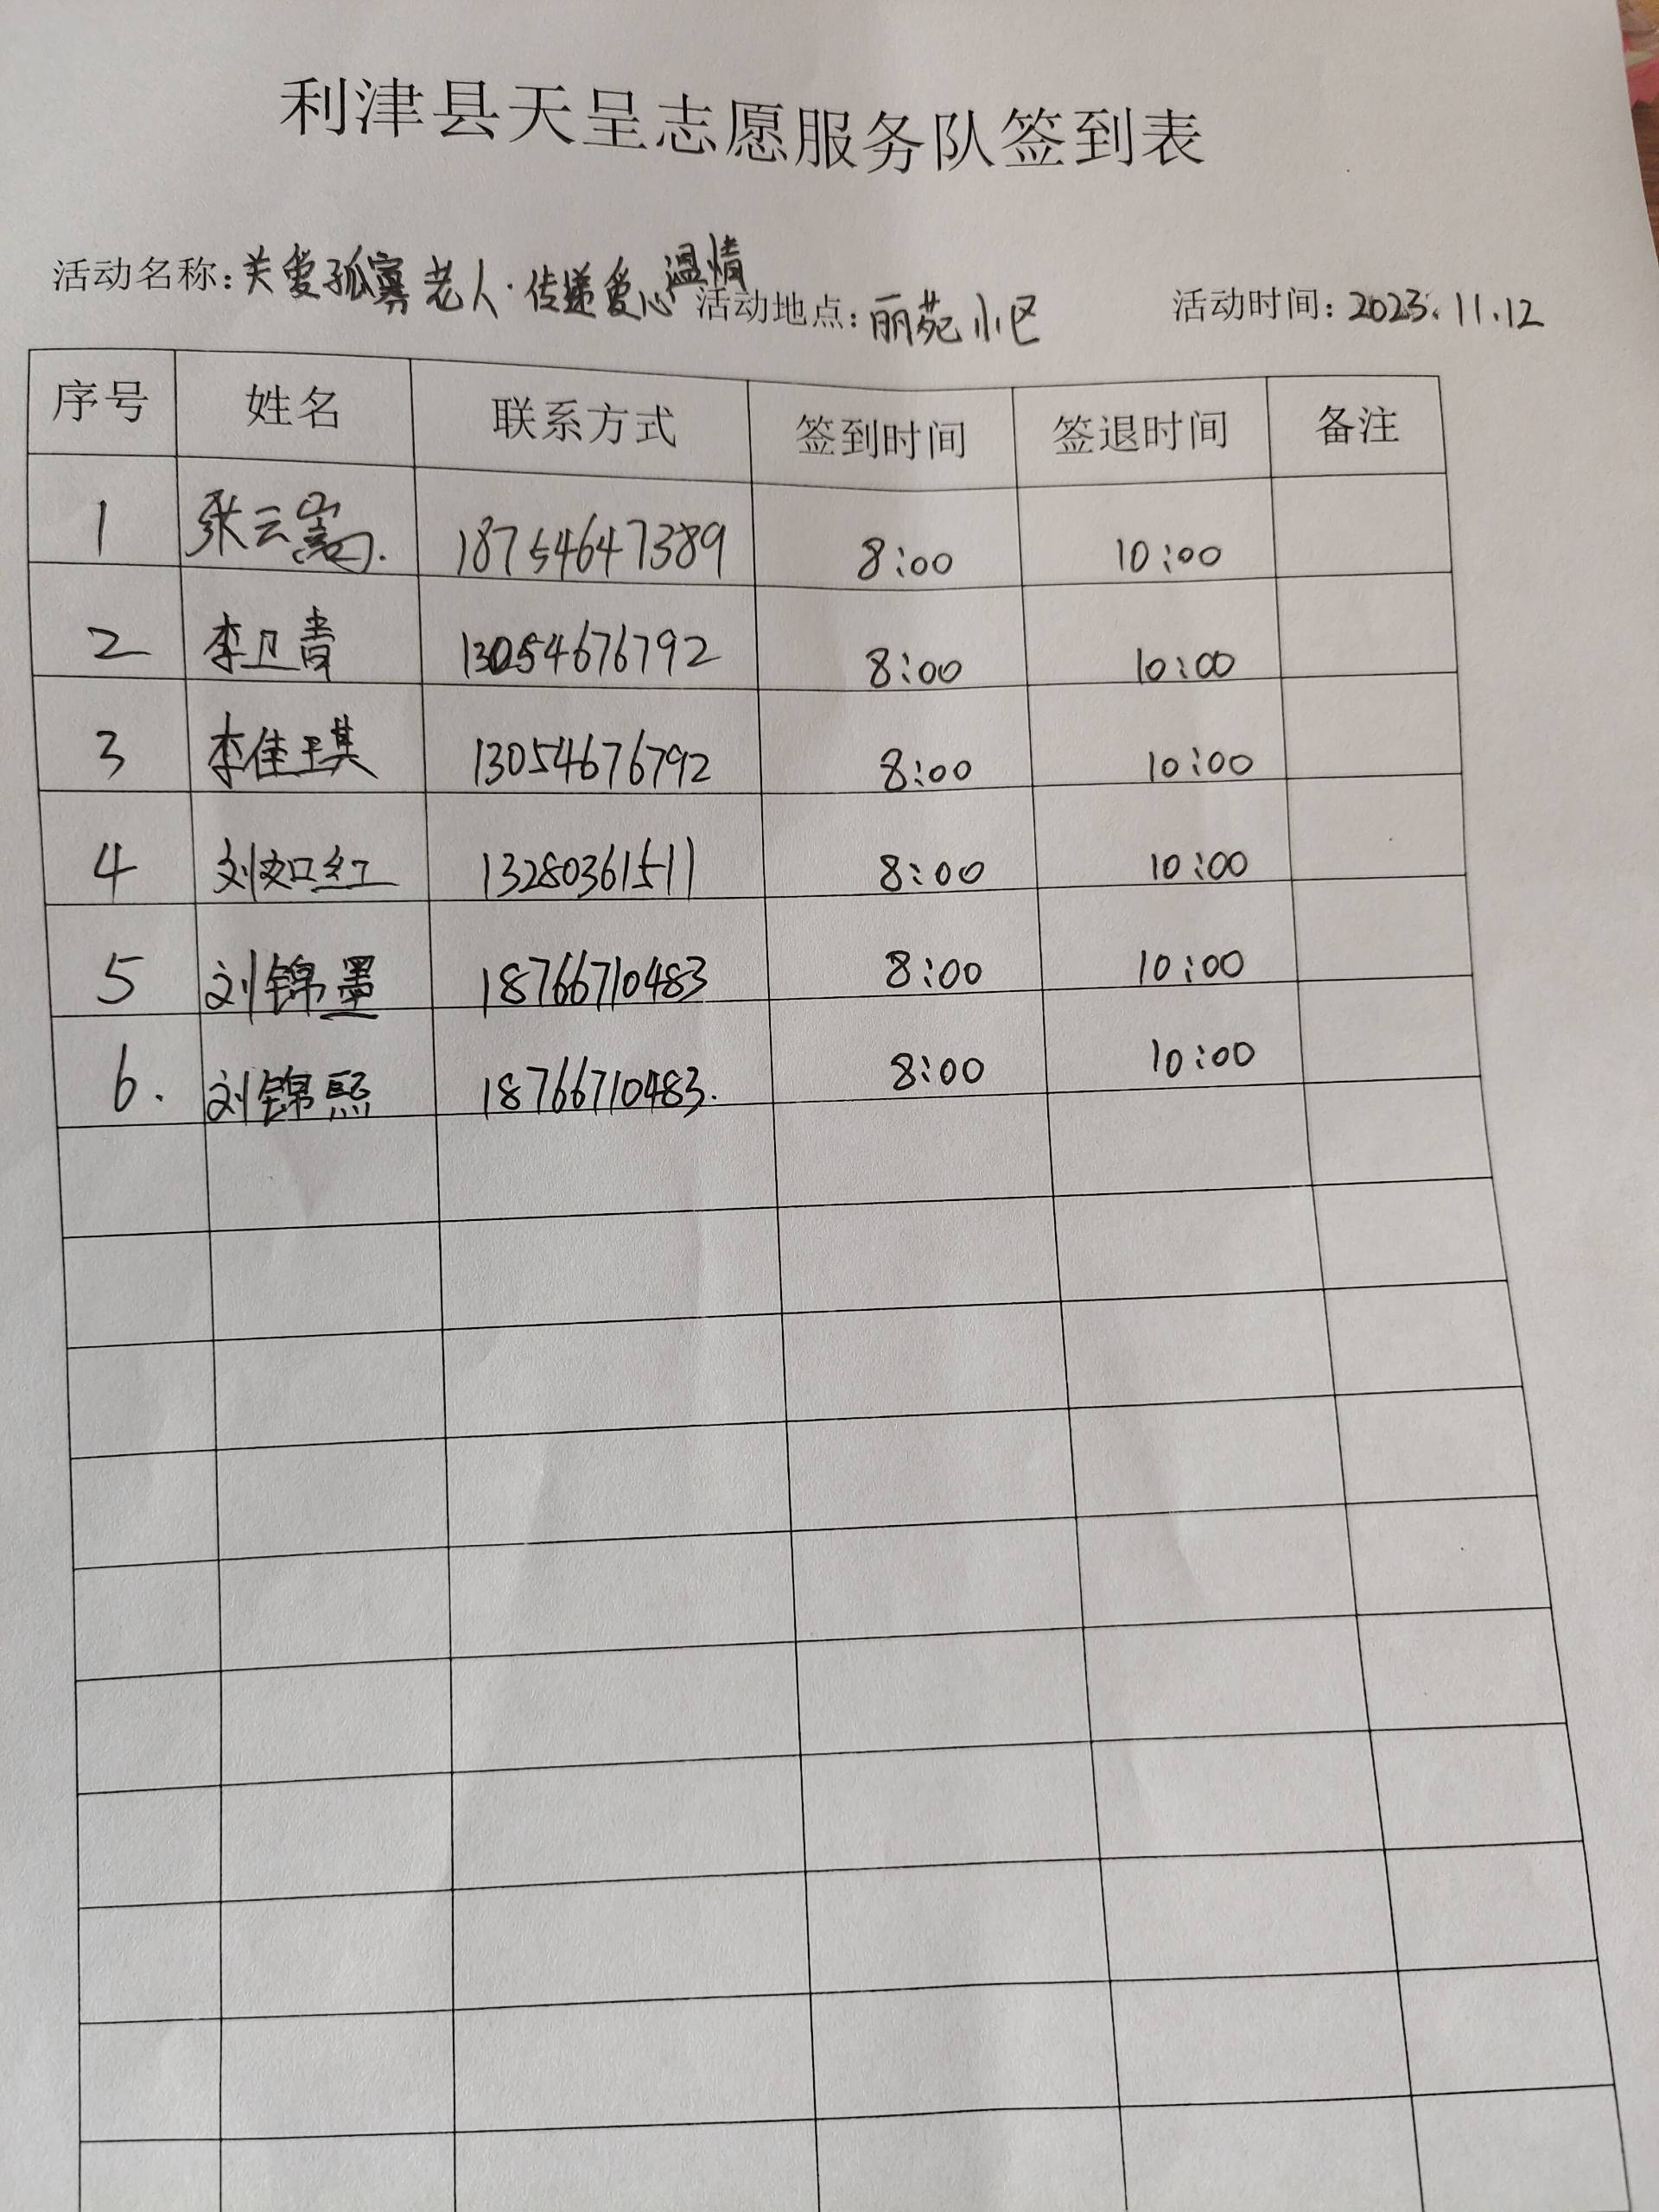 利津县天呈志愿服务队签到表
活动名称:关爱孤寡老人·传递爱心温情 活动地点:丽苑小区 活动时间:2023.11.12
序号 姓名 联系方式 签到时间 签退时间 备注
1 张云嵩. 18754647389 8:00 10:00
2 李卫青 13054676792 8:00 10:00
3 李佳琪 13054676792 8:00 10:00
4 刘如红 13280361511 8:00 10:00
5 刘锦墨 18766710483 8:00 10:00
6. 刘锦熙 18766710483. 8:00 10:00